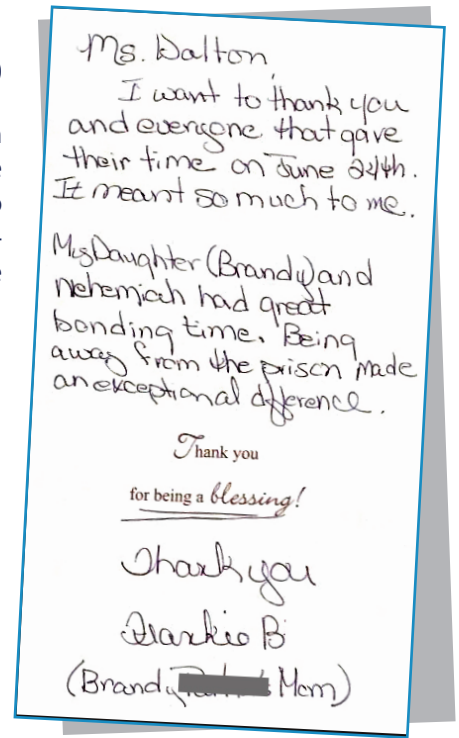 Ms. Dalton,
I want to thank you
and everyone that gave
their time on June 24th.
It meant so much to me.
My Daughter (Brandy) and
Nehemiah had great
bonding time. Being
away from the prison made
an exceptional difference.
Thank you
for being a blessing!
Thank you
Frankie B
(Brandy Mom)